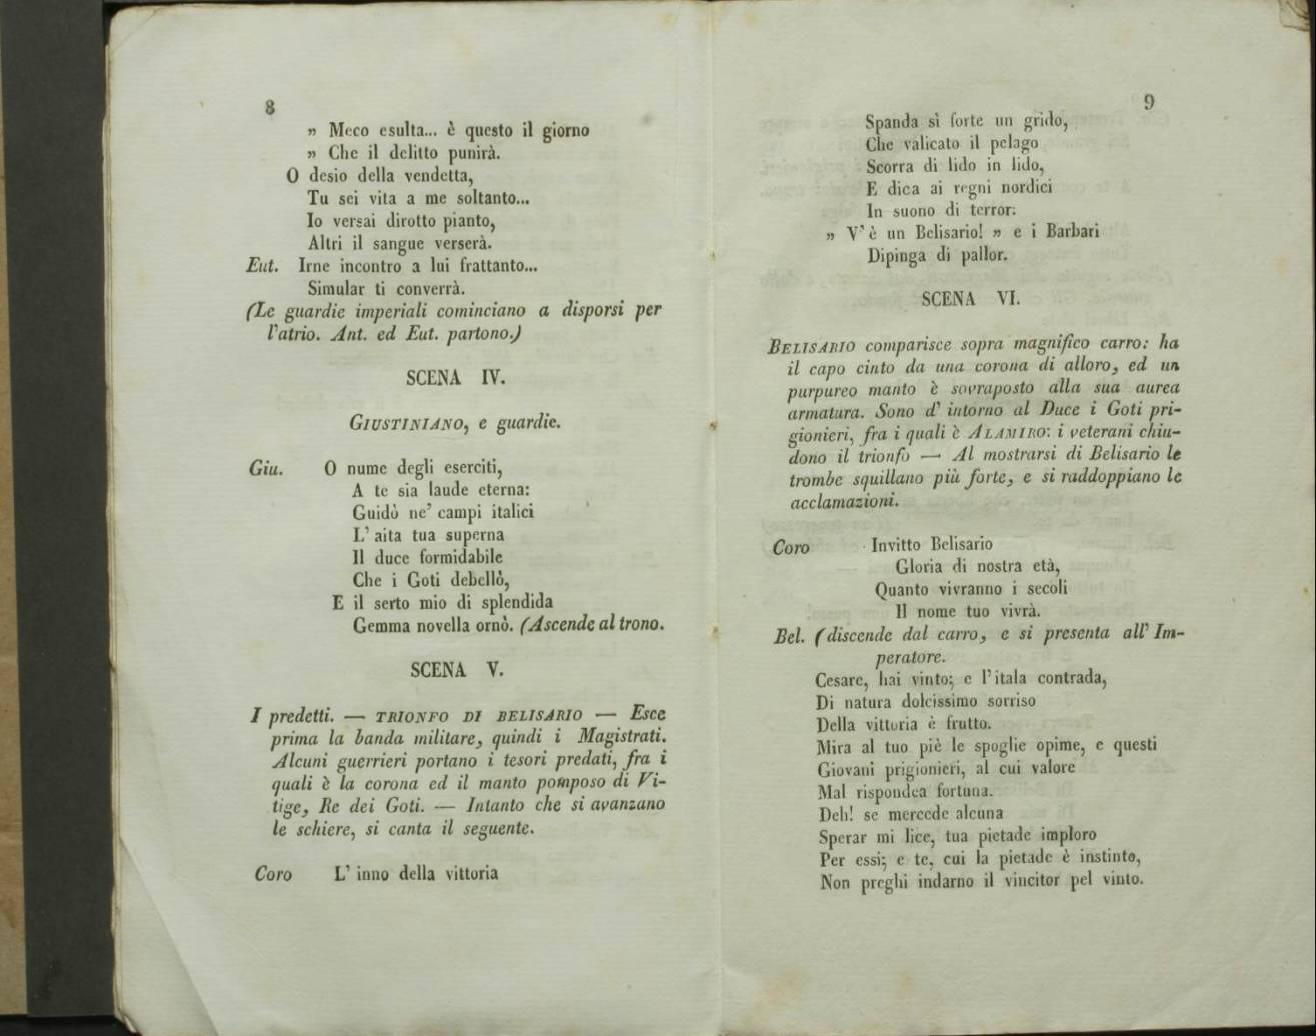 8
„ Meco esulta... è questo il giorno
„ Che il delitto punirà.
O desio della vendetta,
Tu sei vita a me soltanto...
Io versai dirotto pianto,
Altri il sangue verserà.
Eut. Irne incontro a lui frattanto...
Simular ti converrà.
(Le guardie imperiali cominciano a disporsi per
l'atrio. Ant. ed Eut. partono.)
SCENA IV.
GIUSTINIANO, e guardie.
Giu. O nume degli eserciti,
A te sia laude eterna:
Guidò ne' campi italici
L' aita tua superna
Il duce formidabile
Che i Goti debellò,
E il serto mio di splendida
Gemma novella ornò. (Ascende al trono.
SCENA V.
I predetti. — TRIONFO DI BELISARIO — Esce
prima la banda militare, quindi i Magistrati.
Alcuni guerrieri portano i tesori predati, fra i
quali è la corona ed il manto pomposo di Vi-
tige, Re dei Goti. — Intanto che si avanzano
le schiere, si canta il seguente.
Coro L' inno della vittoria
9
Spanda sì forte un grido,
Che valicato il pelago
Scorra di lido in lido,
E dica ai regni nordici
In suono di terror:
„ V' è un Belisario! „ e i Barbari
Dipinga di pallor.
SCENA VI.
BELISARIO comparisce sopra magnifico carro: ha
il capo cinto da una corona di alloro, ed un
purpureo manto è sovraposto alla sua aurea
armatura. Sono d' intorno al Duce i Goti pri-
gionieri, fra i quali è ALAMIRO: i veterani chiu-
dono il trionfo — Al mostrarsi di Belisario le
trombe squillano più forte, e si raddoppiano le
acclamazioni.
Coro Invitto Belisario
Gloria di nostra età,
Quanto vivranno i secoli
Il nome tuo vivrà.
Bel. (discende dal carro, e si presenta all' Im-
peratore.
Cesare, hai vinto; e l' itala contrada,
Di natura dolcissimo sorriso
Della vittoria è frutto.
Mira al tuo piè le spoglie opime, e questi
Giovani prigionieri, al cui valore
Mal rispondea fortuna.
Deh! se mercede alcuna
Sperar mi lice, tua pietade imploro
Per essi; e te, cui la pietade è instinto,
Non preghi indarno il vincitor pel vinto.